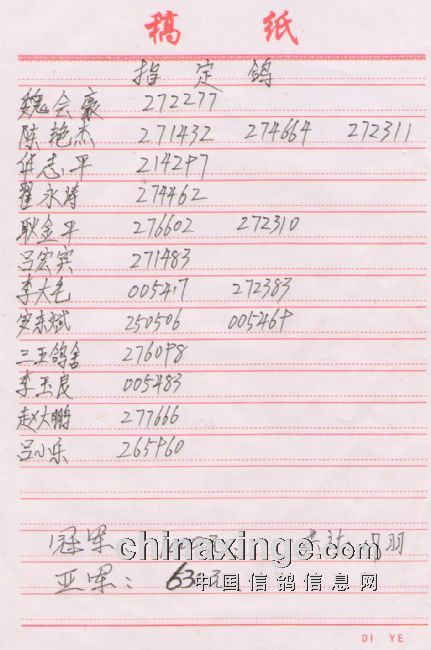 稿 纸
指 定 鸽
魏会豪 272277
陈艳杰 271432 274664 272311
华志平 214297
翟永涛 274462
耿金平 276602 272310
吕宏宾 271483
李大毛 005417 272383
安东斌 250506 005469
三五鸽舍 276098
李玉良 005483
赵大鹏 277666
吕小乐 265960
冠军
chinaxinge.com
亚军: 630元
中国信鸽信息网
DI YE